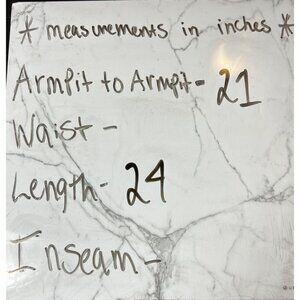 * measurements in inches *
Armpit to Armpit - 21
Waist -
Length - 24
Inseam -